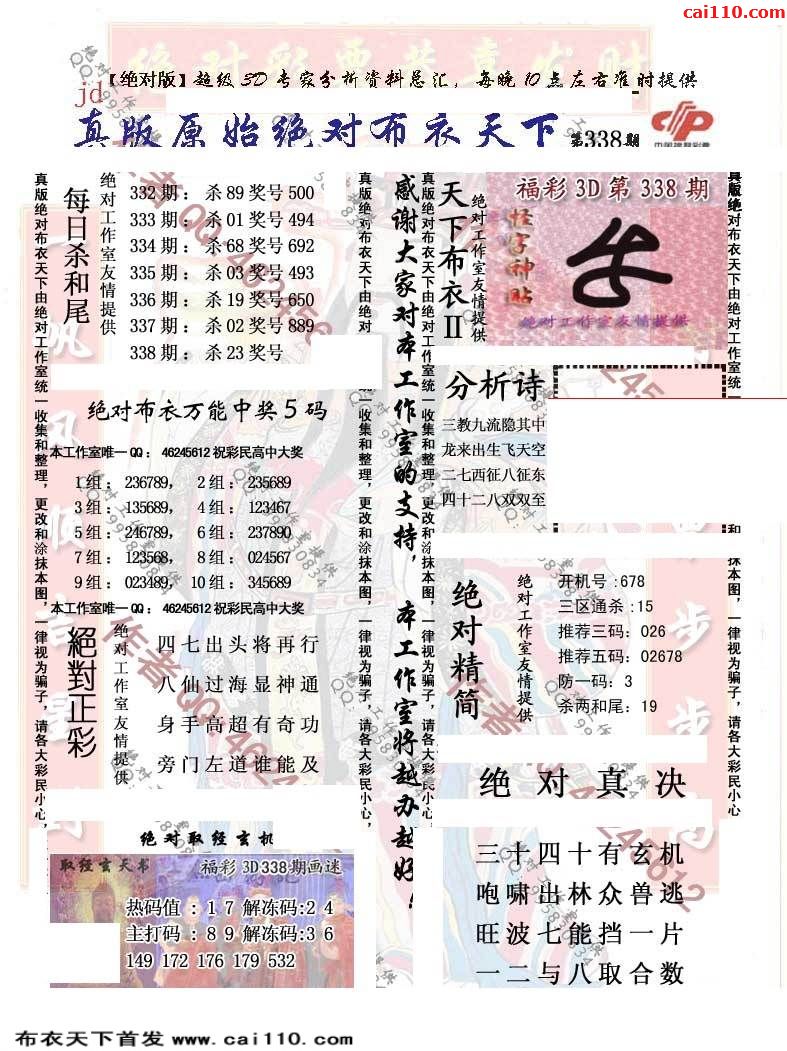 cai110.com
【绝对版】超级3D专家分析资料总汇，每晚10点左右准时提供
jd
真版原始绝对布衣天下
第338期
每日杀和尾
绝对工作室友情提供
332期：杀89奖号500
333期：杀01奖号494
334期：杀68奖号692
335期：杀03奖号493
336期：杀19奖号650
337期：杀02奖号889
338期：杀23奖号
感谢大家对本工作室的支持，本工作室将越办越好！
天下布衣II
绝对工作室友情提供
福彩3D第338期
怪字神贴
绝对工作室友情提供
绝对布衣万能中奖5码
本工作室唯一QQ：46245612祝彩民高中大奖
1组：236789，2组：235689
3组：135689，4组：123467
5组：246789，6组：237890
7组：123568，8组：024567
9组：023489，10组：345689
本工作室唯一QQ：46245612祝彩民高中大奖
分析诗
三教九流隐其中
龙来出生飞天空
二七西征八征东
四十二八双双至
绝对精简
绝对工作室友情提供
开机号:678
三区通杀:15
推荐三码：026
推荐五码：02678
防一码：3
杀两和尾：19
絕對正彩
绝对工作室友情提供
四七出头将再行
八仙过海显神通
身手高超有奇功
旁门左道谁能及
绝对真决
三十四十有玄机
咆啸出林众兽逃
旺波七能挡一片
一二与八取合数
绝对取经玄机
取经玄天书
福彩3D338期画迷
热码值：17解冻码:24
主打码：89解冻码:36
149 172 176 179 532
真版绝对布衣天下由绝对工作室统一收集和整理，更改和涂抹本图，一律视为骗子，请各大彩民小心，
真版绝对布衣天下由绝对
收集和整理，更改和涂抹本图，一律视为骗子，请各大彩民小心，
真版绝对布衣天下由绝对工作室统一收集和整理，更改和涂抹本图，一律视为骗子，请各大彩民小心，
真版绝对布衣天下由绝对工作室统一
和涂抹本图，一律视为骗子，请各大彩民小心
布衣天下首发 www.cai110.com